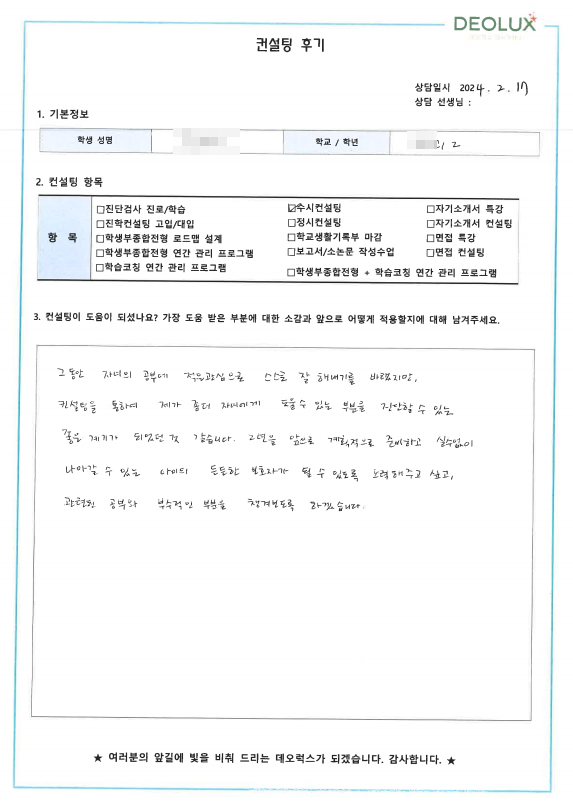 DEOLUX
컨설팅 후기
상담일시 2024. 2. 17
상담 선생님 :
1. 기본정보
학생 성명 학교 / 학년 2
2. 컨설팅 항목
항 목
□진단검사 진로/학습 ☑수시컨설팅 □자기소개서 특강
□진학컨설팅 고입/대입 □정시컨설팅 □자기소개서 컨설팅
□학생부종합전형 로드맵 설계 □학교생활기록부 마감 □면접 특강
□학생부종합전형 연간 관리 프로그램 □보고서/소논문 작성수업 □면접 컨설팅
□학습코칭 연간 관리 프로그램 □학생부종합전형 + 학습코칭 연간 관리 프로그램
3. 컨설팅이 도움이 되셨나요? 가장 도움 받은 부분에 대한 소감과 앞으로 어떻게 적용할지에 대해 남겨주세요.
그동안 자녀의 공부에 적은관심으로 스스로 잘 해내기를 바랬지만,
컨설팅을 통하여 제가 좀더 자녀에게 도울수 있는 부분을 진단할 수 있는
좋은 계기가 되었던 것 같습니다. 2년을 앞으로 계획적으로 준비하고 실수없이
나아갈 수 있는 나이의 든든한 보호자가 될 수 있도록 노력해주고 싶고,
관련된 공부와 부수적인 부분을 챙겨보도록 하겠습니다.
★ 여러분의 앞길에 빛을 비춰 드리는 데오럭스가 되겠습니다. 감사합니다. ★